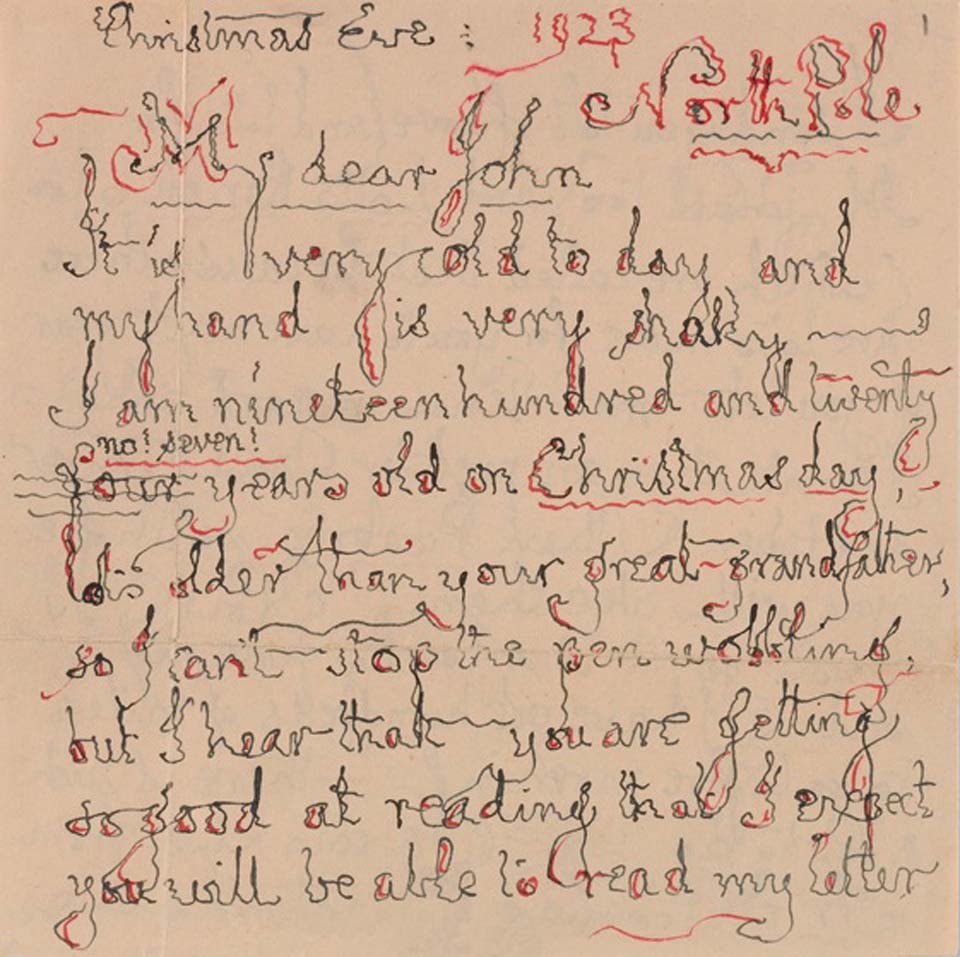 1
Christmas Eve : 1923
North Pole
My dear John
It is very cold to day and
my hand is very shaky
I am nineteen hundred and twenty
no! seven!
four years old on Christmas day,
lots older than your great-grandfather,
so I can't stop the pen wobbling,
but I hear that you are getting
so good at reading that I expect
you will be able to read my letter